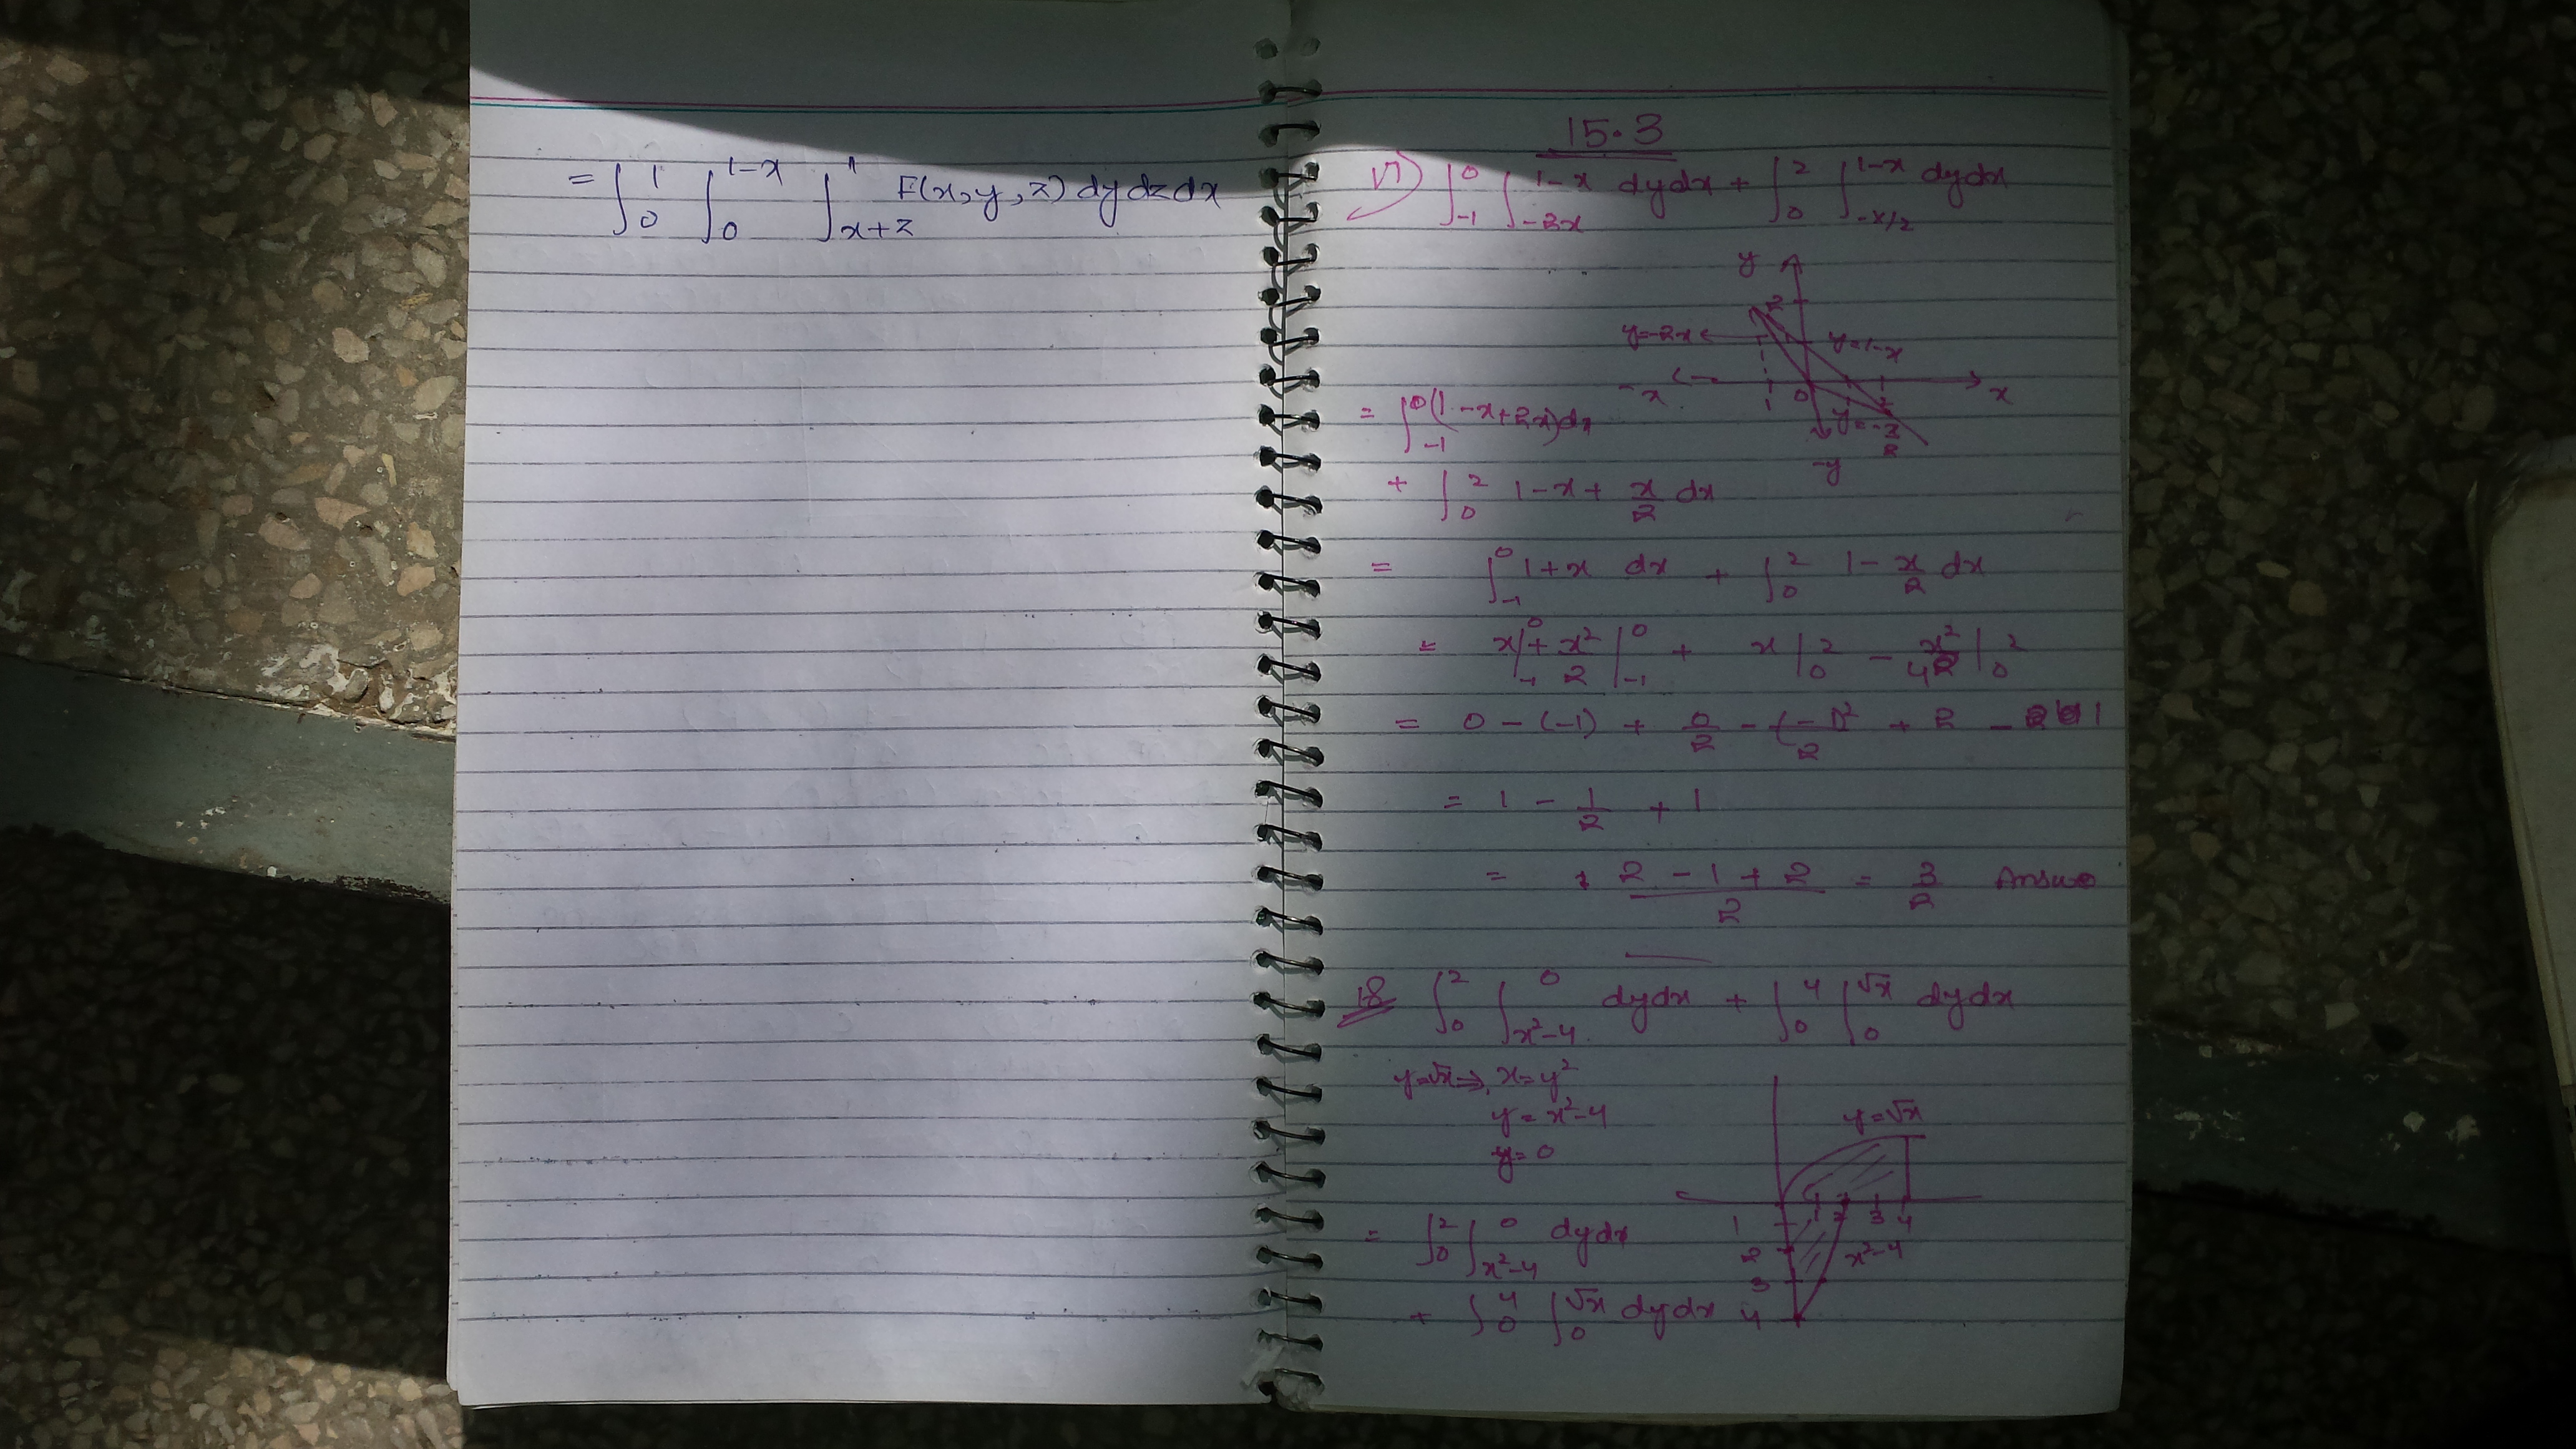 = ∫₀¹ ∫₀^{1-x} ∫_{x+z}^{1} F(x,y,z) dy dz dx
15.3
17) ∫_{-1}^{0} ∫_{-2x}^{1-x} dy dx + ∫₀² ∫_{-x/2}^{1-x} dy dx
y
2
y=-2x y=1-x
-x 1 0 x
y=-x/2
-y
= ∫_{-1}^{0} (1-x+2x) dx
+ ∫₀² 1-x+ x/2 dx
= ∫_{-1}^{0} 1+x dx + ∫₀² 1- x/2 dx
= x|_{-1}^{0} + x²/2 |_{-1}^{0} + x|₀² - x²/4 |₀²
= 0-(-1) + 0/2 - (-1)²/2 + 2 - 1
= 1 - 1/2 + 1
= (2-1+2)/2 = 3/2
18 ∫₀² ∫_{x²-4}^{0} dy dx + ∫₀⁴ ∫₀^{√x} dy dx
y=√x ⇒ x=y²
y=x²-4
y=0
y=√x
1 2 3 4
1
2
3
4
x²-4
= ∫₀² ∫_{x²-4}^{0} dy dx
+ ∫₀⁴ ∫₀^{√x} dy dx